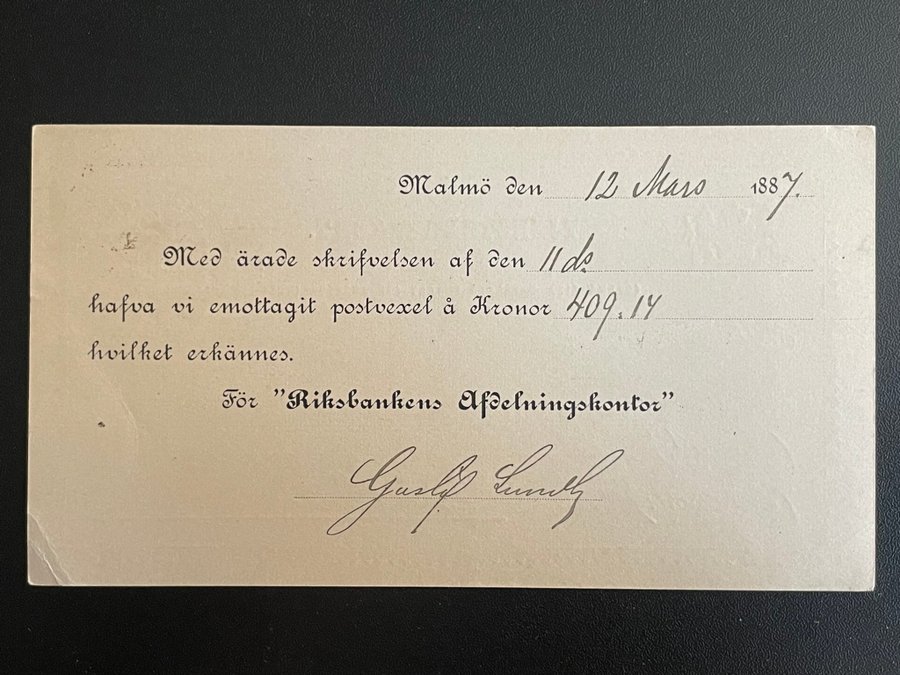 Malmö den 12 Mars 1887.
Med ärade skrifvelsen af den 11 ds
hafva vi emottagit postvexel å Kronor 409.14
hvilket erkännes.
För "Riksbankens Afdelningskontor"
Gustf Lundh